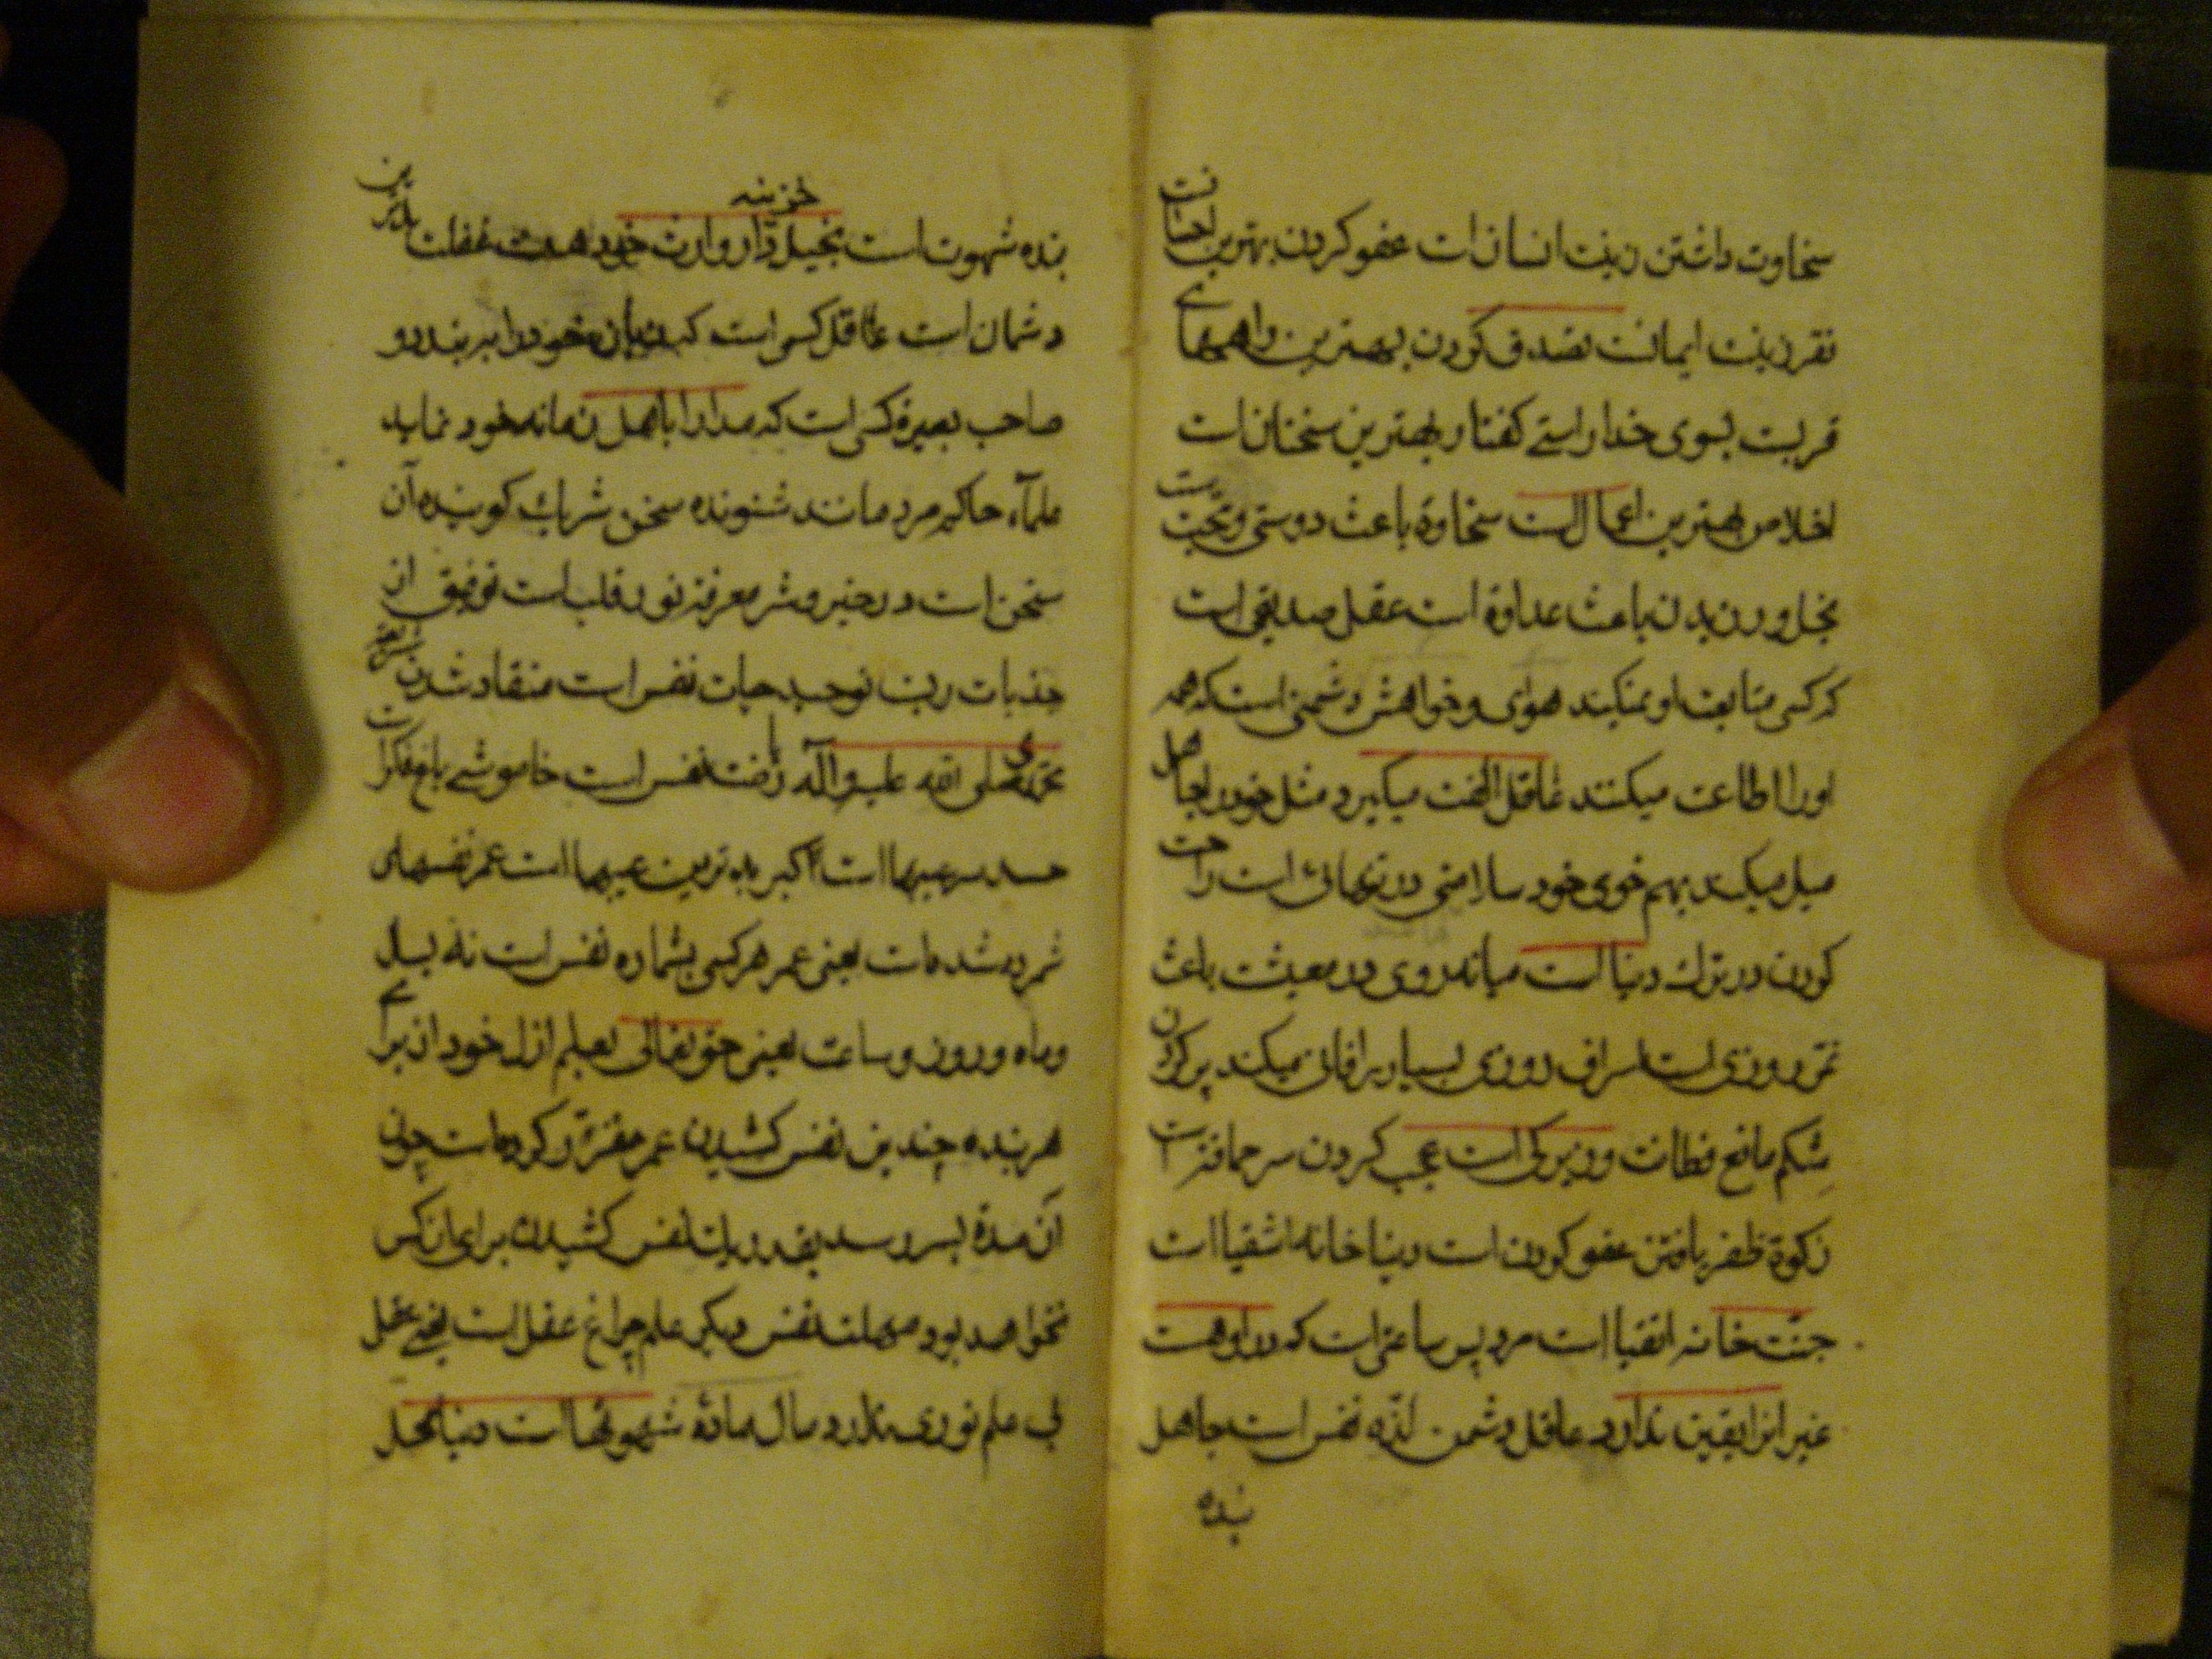 سخاوت داشتن زینت انسانست عفو کردن بهترین احسانست
فقر زینت ایمانست تصدق کردن بهترین راههای
قربت بسوی خدا راستی گفتار بهترین سخنانست
اخلاص بهترین اعمالست سخاوة باعث دوستی و محبت
بخل ورزیدن باعث عداوة است عقل صدیقی است
که کسی متابعت او نمیکند هوای و خواهش دشمنی است که همه
او را اطاعت میکنند عاقل الفت میگیرد مثل خود را جاهل
میل میکند بهم خوی خود سلامتی در تنهائی است راحت
کردن در ترک دنیا است میانه روی در معیشت باعث
روزی است اسراف روزی بسیار را فانی میکند پر کردن
شکم مانع فطانت و زیرکی است عجب کردن سر حماقتست
زکوة ظفر یافتن عفو کردن است دنیا خانه اشقیا است
جنت خانه اتقیا است مرد پس ساعتی است که در او هست
غیر از یقین ندارد عاقل دشمن لذة نفس است جاهل
بنده
خزینه
بنده شهوت است بخیل دار وارث خود است غفلت بدترین
دشمنان است عاقل کسی است که زبان خود را ببندد و
صاحب بصیرة کسی است که مدارا با اهل زمانه خود نماید
علماء حاکم مردمانند شنونده سخن شریک گوینده آن
سخن است در خیر و شر معرفة نور قلب است توفیق از
جذبات رب توحید حیات نفس است منقاد شدن شریعة
صلی الله علیه و آله ریاضت نفس است خاموشی باغ فکر است
حسد سر عیبها است کبر بدترین عیبها است عمر نفسهای
شمرده شده است یعنی عمر هر کسی بشماره نفس است نه بسال
و ماه و روز و ساعت یعنی حق تعالی بعلم ازل خود از برای
هر بنده چندین نفس کشیدن عمر مقرر کرده است چون
آن مدة بسر رسد بقدر یک نفس کشیدن برای آن کس
نخواهد بود مهلت نفس دیگر علم چراغ عقل است یعنی عقل
بی علم نوری ندارد مال مادة شهوتها است دنیا محل